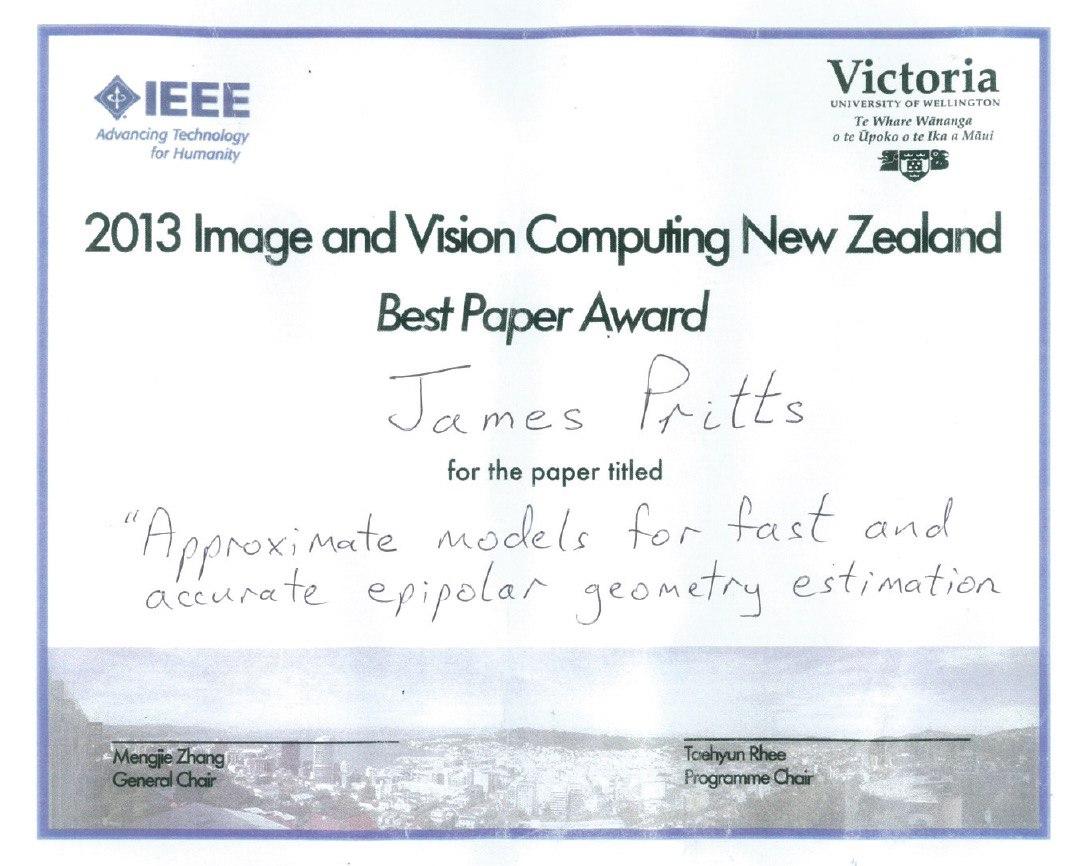 IEEE
Advancing Technology
for Humanity
Victoria
UNIVERSITY OF WELLINGTON
Te Whare Wānanga
o te Ūpoko o te Ika a Māui
2013 Image and Vision Computing New Zealand
Best Paper Award
James Pritts
for the paper titled
"Approximate models for fast and
accurate epipolar geometry estimation
Mengjie Zhang
General Chair
Taehyun Rhee
Programme Chair